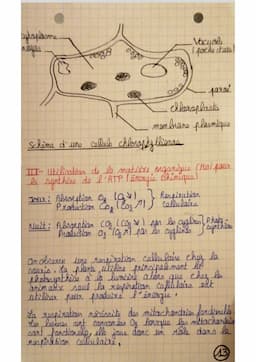 cytoplasme
Vacuole
(poche d'eau)
paroi
chloroplaste
membrane plasmique
Schéma d'une cellule chlorophyllienne
III - Utilisation de la matière organique (Mo) pour
la synthèse de l'ATP (énergie chimique)
Absorption O₂ (O₂↘) } Respiration
Production CO₂ (CO₂↗) cellulaire
Nuit : Absorption CO₂ (CO₂↘) par les } Photo-
Production O₂ (O₂↗) par synthèse
On observe une respiration cellulaire chez la
souris. La plante utilise principalement la
photosynthèse à la lumière alors que chez les
animaux seul la respiration cellulaire est
utilisée pour produire l'énergie.
La respiration nécessite des mitochondries fonctionnelles.
Les levures ont consommé O₂ lorsque les mitochondries
sont fonctionnelles, elle joue donc un rôle dans la
respiration cellulaire.
13